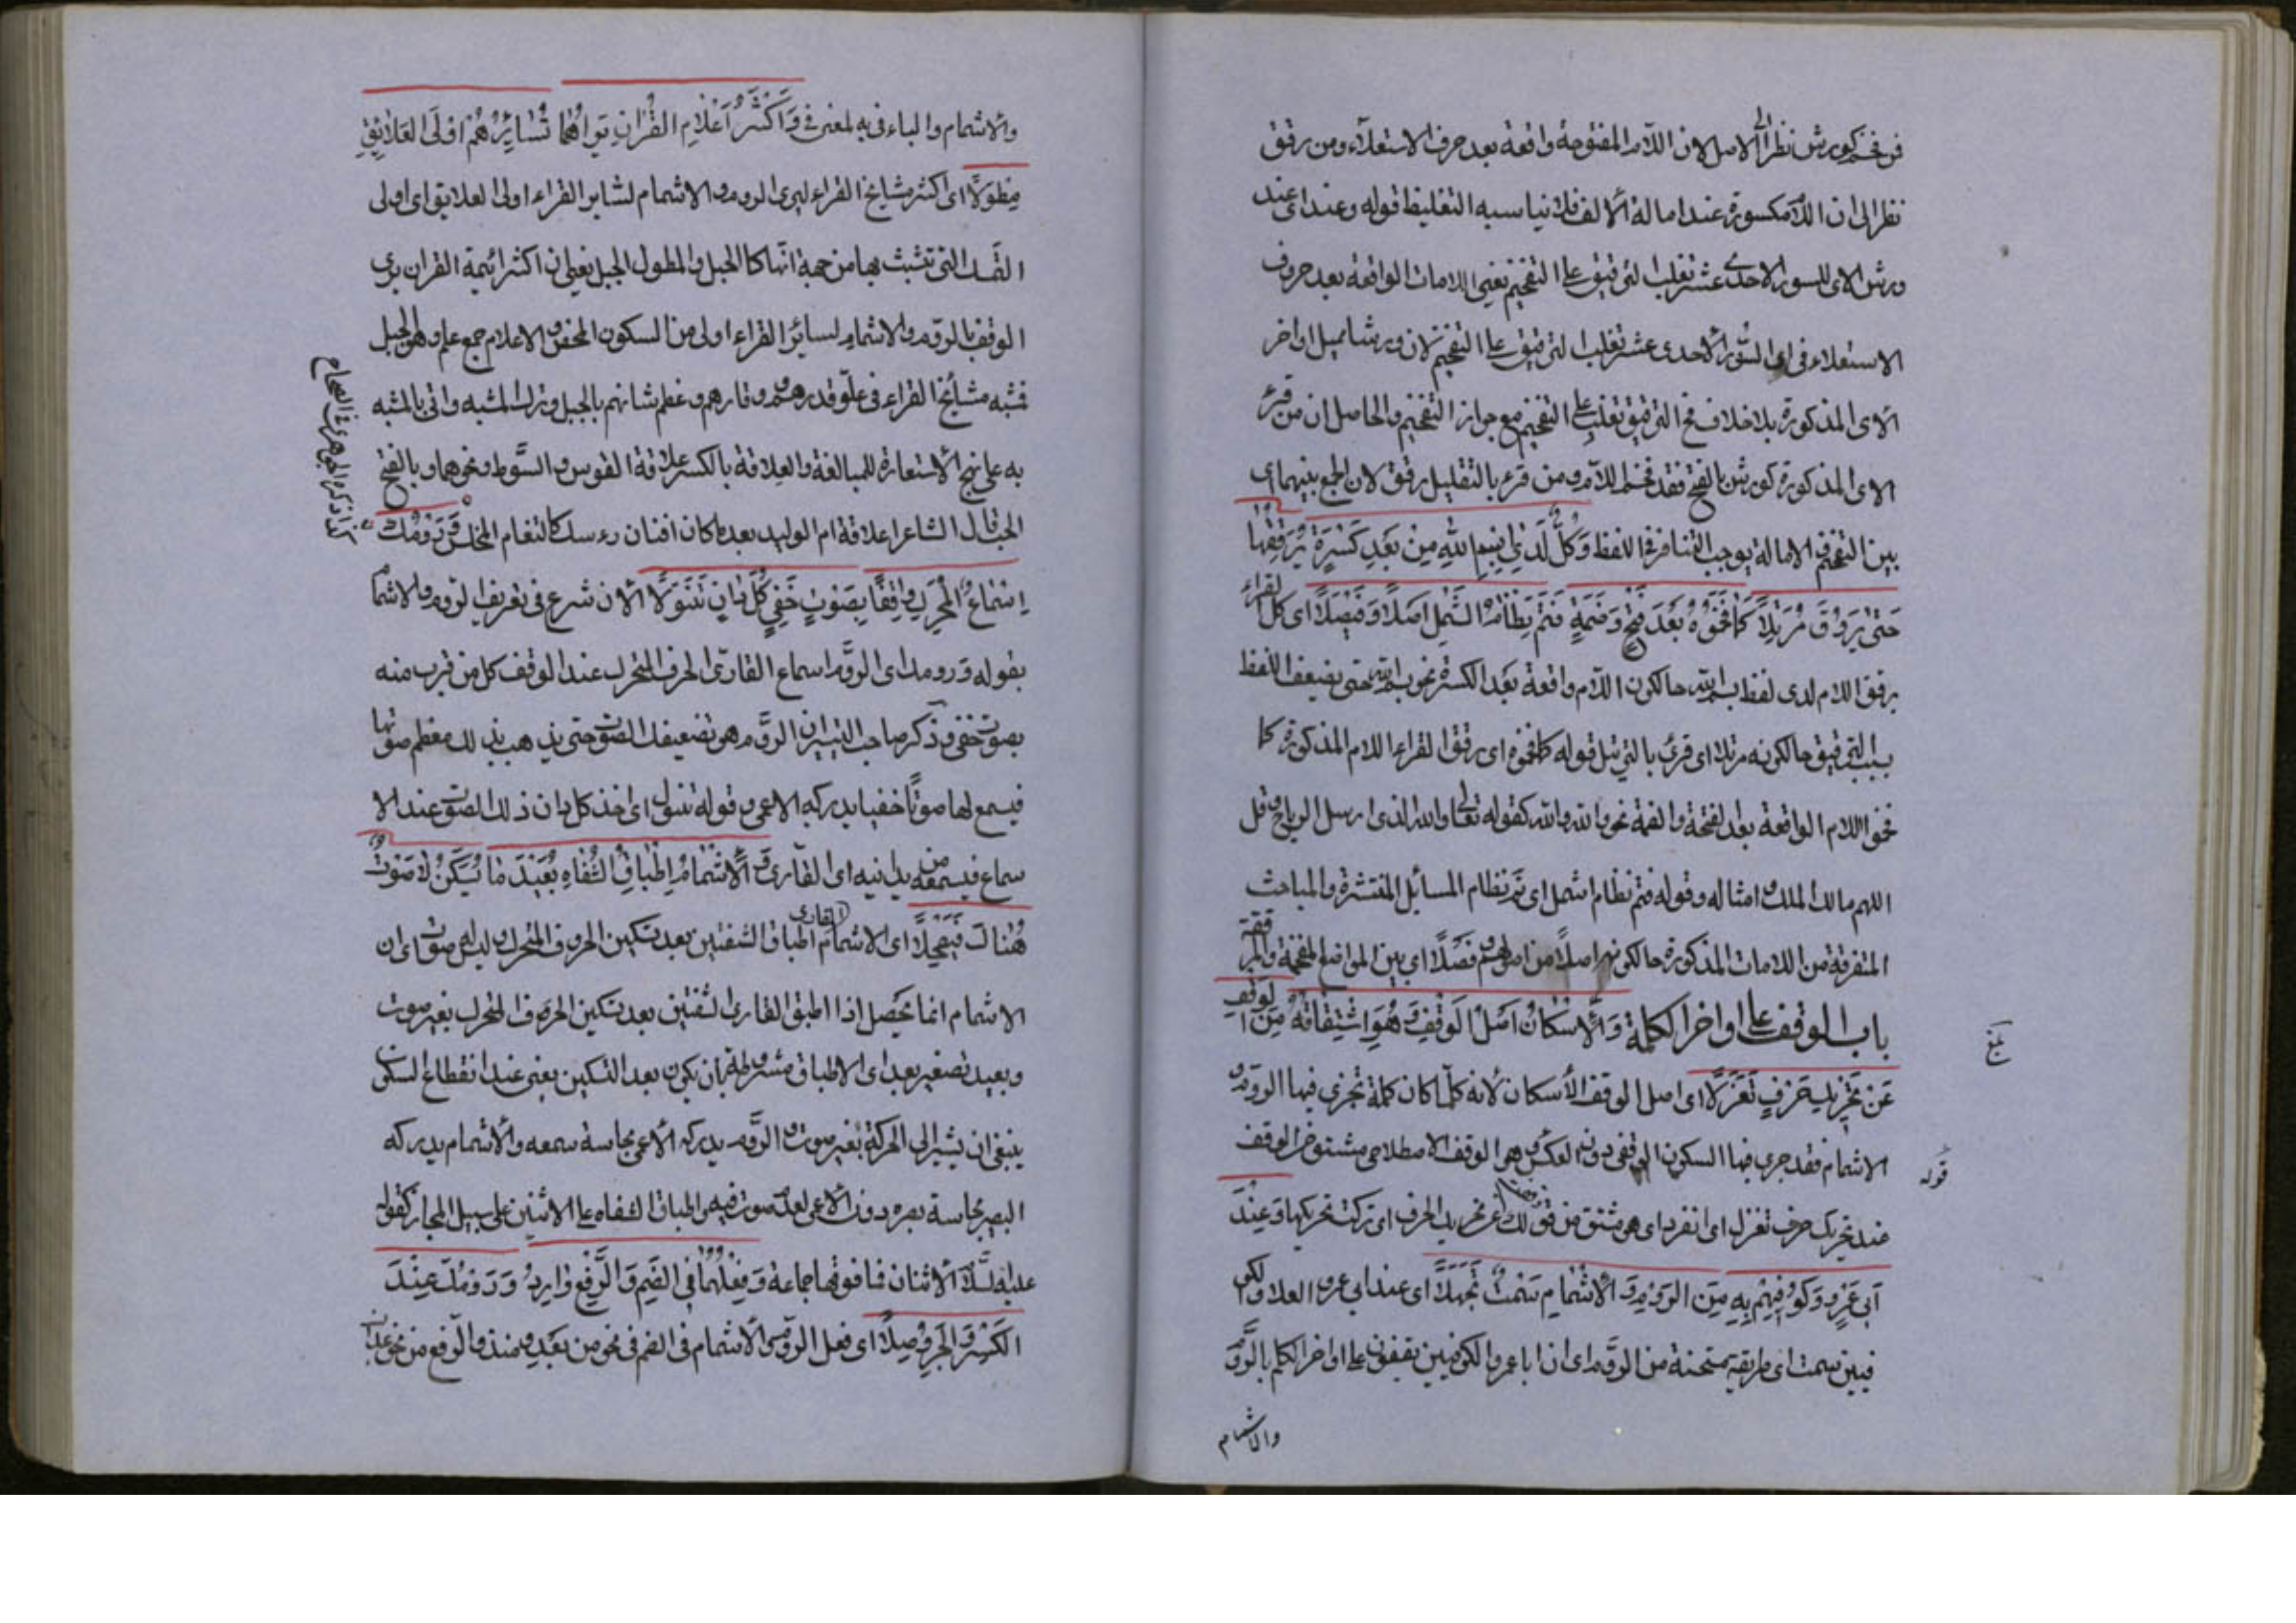 فمن فخم كورش نظرا الى الاصل لان اللام المفتوحة واقعة بعد حرف الاستعلاء ومن رقق
نظر الى ان اللام مكسورة عند امالة الالف فلا يناسبه التغليظ قوله وعند اى عند
ورش الاى للسور الاحدى عشر تغلب الترقيق على التفخيم يعنى اللامات الواقعة بعد حروف
الاستعلاء فى اى السور الاحدى عشر تغليب الترقيق على التفخيم لان ورشا يميل اواخر
الاى المذكورة بلا خلاف فح الترقيق تغلب على التفخيم مع جواز التفخيم والحاصل ان من قرئ
الاى المذكورة كورش بالفتح فقد فخم اللام ومن قرء بالتقليل رقق لان الجمع بينهما اى
بين التفخيم والامالة يوجب التنافر فى اللفظ وَكُلٌّ لَدَى اسْمِ اللهِ مِنْ بَعْدِ كَسْرَةٍ يُرَقِّقُهَا
حَتّٰى يَرُوقَ مُرَتَّلاً كَمَا فَخَّمُوهُ بَعْدَ فَتْحٍ وَضَمَّةٍ فَتَمَّ نِظَامُ الشَّمْلِ اصْلاً وَفَيْصَلاً اى كل القراء
يرقق اللام لدى لفظ بسم الله حال كون اللام واقعة بعد الكسرة نحو بسم الله حتى يضعف اللفظ
بسبب الترقيق حال كونه مرتلا اى قرئ بالترتيل قوله كما فخموه اى رققوا القراء اللام المذكورة كما
فخموا اللام الواقعة بعد الفتحة والضمة نحو والله والله كقوله تعالى والله الذى ارسل الرياح وقل
اللهم مالك الملك وامثاله وقوله فتم نظام الشمل اى تم نظام المسائل المنتشرة والمباحث
المتفرقة من اللامات المذكورة حال كونه اصلا من اصولهم وفصلا اى بين المواضع المفخمة والمرققة
باب الوقف على اواخر الكلمة وَالْاِسْكَانُ اَصْلُ الْوَقْفِ وَهُوَ اشْتِقَاقُهُ مِنَ الْوَقْفِ
عَنْ تَحْرِيكِ حَرْفٍ تَعَزَّلَا اى اصل الوقف الأسكان لانه كلما كان كلمة تجرى فيها الروم و
الاشمام فقد جرى فيها السكون الوقفى دون العكس وهو الوقف الاصطلاحى مشتق من الوقف
عند تحريك حرف تعزل اى انفرد اى هو مشتق من قولك عن تحريك الحرف اى تركت تحريكها وَعِنْدَ
اَبِى عَمْرٍو وَكُوفِيِّهِمْ بِهِ مِنَ الرَّوْمِ وَالْاِشْمَامِ سَمْتٌ تَجَمَّلَا اى عند ابى عمرو العلا والكو
فيين سمت اى طريقة مستحسنة من الروم اى ان ابا عمرو والكوفيين يقفون على اواخر الكلم بالروم
والاشمام
بلغ
قوله
والاشمام والباء فى به لمعنى فى وَاَكْثَرُ اَعْلَامِ الْقُرْانِ يَرَاهُمَا لِسَائِرِهِمْ اَوْلَى الْعَلَائِقِ
مِطْوَلاً اى اكثر مشايخ القراء ليرى الروم والاشمام لسائر القراء اولى العلايق اى اولى
التى تشبث بها من جهة انها كالحبل والمطول الحبل يعنى ان اكثر ائمة القران يرى
الوقف بالروم والاشمام لسائر القراء اولى من السكون المحض والاعلام جمع علم وهو الجبل
فشبه مشايخ القراء فى علو قدرهم ووقارهم وعظم شانهم بالجبل وترك المشبه واتى بالمشبه
به على نهج الاستعارة للمبالغة والعلاقة بالكسر علاقة القوس والسوط ونحوهما وبالفتح
الحب قال الشاعر اعلاقة ام الوليد بعد ما كان افنان رءسك كالثغام المخلس وَرَوْمُكَ
اِسْمَاعُ الْمُحَرَّكِ وَاقِفًا بِصَوْتٍ خَفِىٍّ كُلَّ دَانٍ تَنَوَّلَا الأن شرع فى تعريف الروم والاشمام
بقوله ورومك اى الروم اسماع القارئ الحرف المتحرك عند الوقف كل من قرب منه
بصوت خفى وذكر صاحب التيسير ان الروم هو تضعيفك الصوت حتى يذهب بذلك معظم صوتها
فيسمع لها صوتا خفيا يدركه الاعمى وقوله تنول اى اخذ كل دان ذلك الصوت عند الا
سماع فيسمعه من يدانيه اى القارئ وَالْاِشْمَامُ اِطْبَاقُ الشِّفَاهِ بُعَيْدَ مَا يُسَكَّنُ لَا صَوْتٌ
هُنَاكَ فَيَصْحَلَا اى الاشمام اطباق القارى الشفتين بعد تسكين الحروف المتحرك وليس له صوت اى ان
الاشمام انما يحصل اذا اطبق القارئ الشفتين بعد تسكين الحرف المتحرك بغير صوت
وبعيد تصغير بعد اى الاطباق مشروطة بان يكون بعد التسكين يعنى عند انقطاع السكون
ينبغى ان يشير الى الحركة بغير صوت والروم يدركه الاعمى بحاسة سمعه والاشمام يدركه
البصير بحاسة بصره دون الاعمى لعدم صوت فيه واطباق الشفاه على الاثنين على سبيل المجاز كقوله
عليه السلام الاثنان فما فوقهما جماعة وَفِعْلُهُمَا فِى الضَّمِّ وَالرَّفْعِ وَارِدٌ وَرَوْمُكَ عِنْدَ
الْكَسْرِ وَالْجَرِّ وُصِّلَا اى فعل الروم والاشمام فى الضم فى نحو من بعد ومنذ والرفع من نحو عذاب
كذا ذكره الجوهرى فى الصحاح